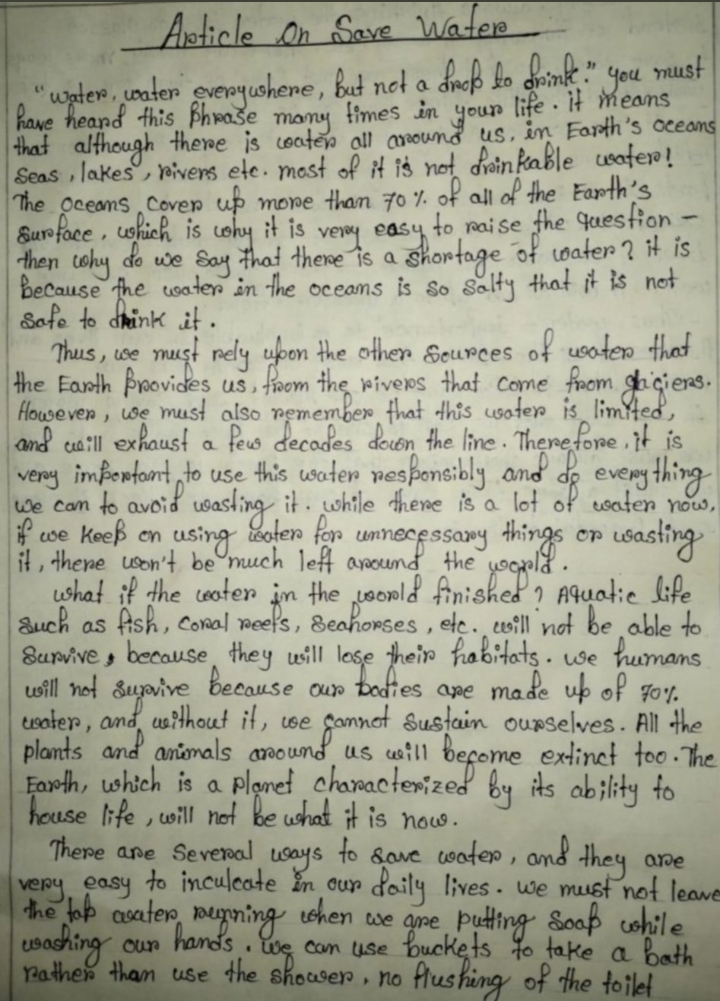 Article On Save Water
"water, water everywhere, but not a drop to drink." you must
have heard this phrase many times in your life. it means
that although there is water all around us, in Earth's oceans
seas, lakes, rivers etc. most of it is not drinkable water!
The oceans cover up more than 70% of all of the Earth's
Surface, which is why it is very easy to raise the question –
then why do we say that there is a shortage of water? it is
because the water in the oceans is so salty that it is not
safe to drink it.
Thus, we must rely upon the other sources of water that
the Earth provides us, from the rivers that come from glaciers.
However, we must also remember that this water is limited,
and will exhaust a few decades down the line. Therefore, it is
very important to use this water responsibly and do everything
we can to avoid wasting it. while there is a lot of water now,
if we keep on using water for unnecessary things or wasting
it, there won't be much left around the world.
what if the water in the world finished? Aquatic life
such as fish, coral reefs, seahorses, etc. will not be able to
survive, because they will lose their habitats. we humans
will not survive because our bodies are made up of 70%
water, and without it, we cannot sustain ourselves. All the
plants and animals around us will become extinct too. The
Earth, which is a planet characterized by its ability to
house life, will not be what it is now.
There are several ways to save water, and they are
very easy to inculcate in our daily lives. we must not leave
the tap water running when we are putting soap while
washing our hands. we can use buckets to take a bath
rather than use the shower, no flushing of the toilet